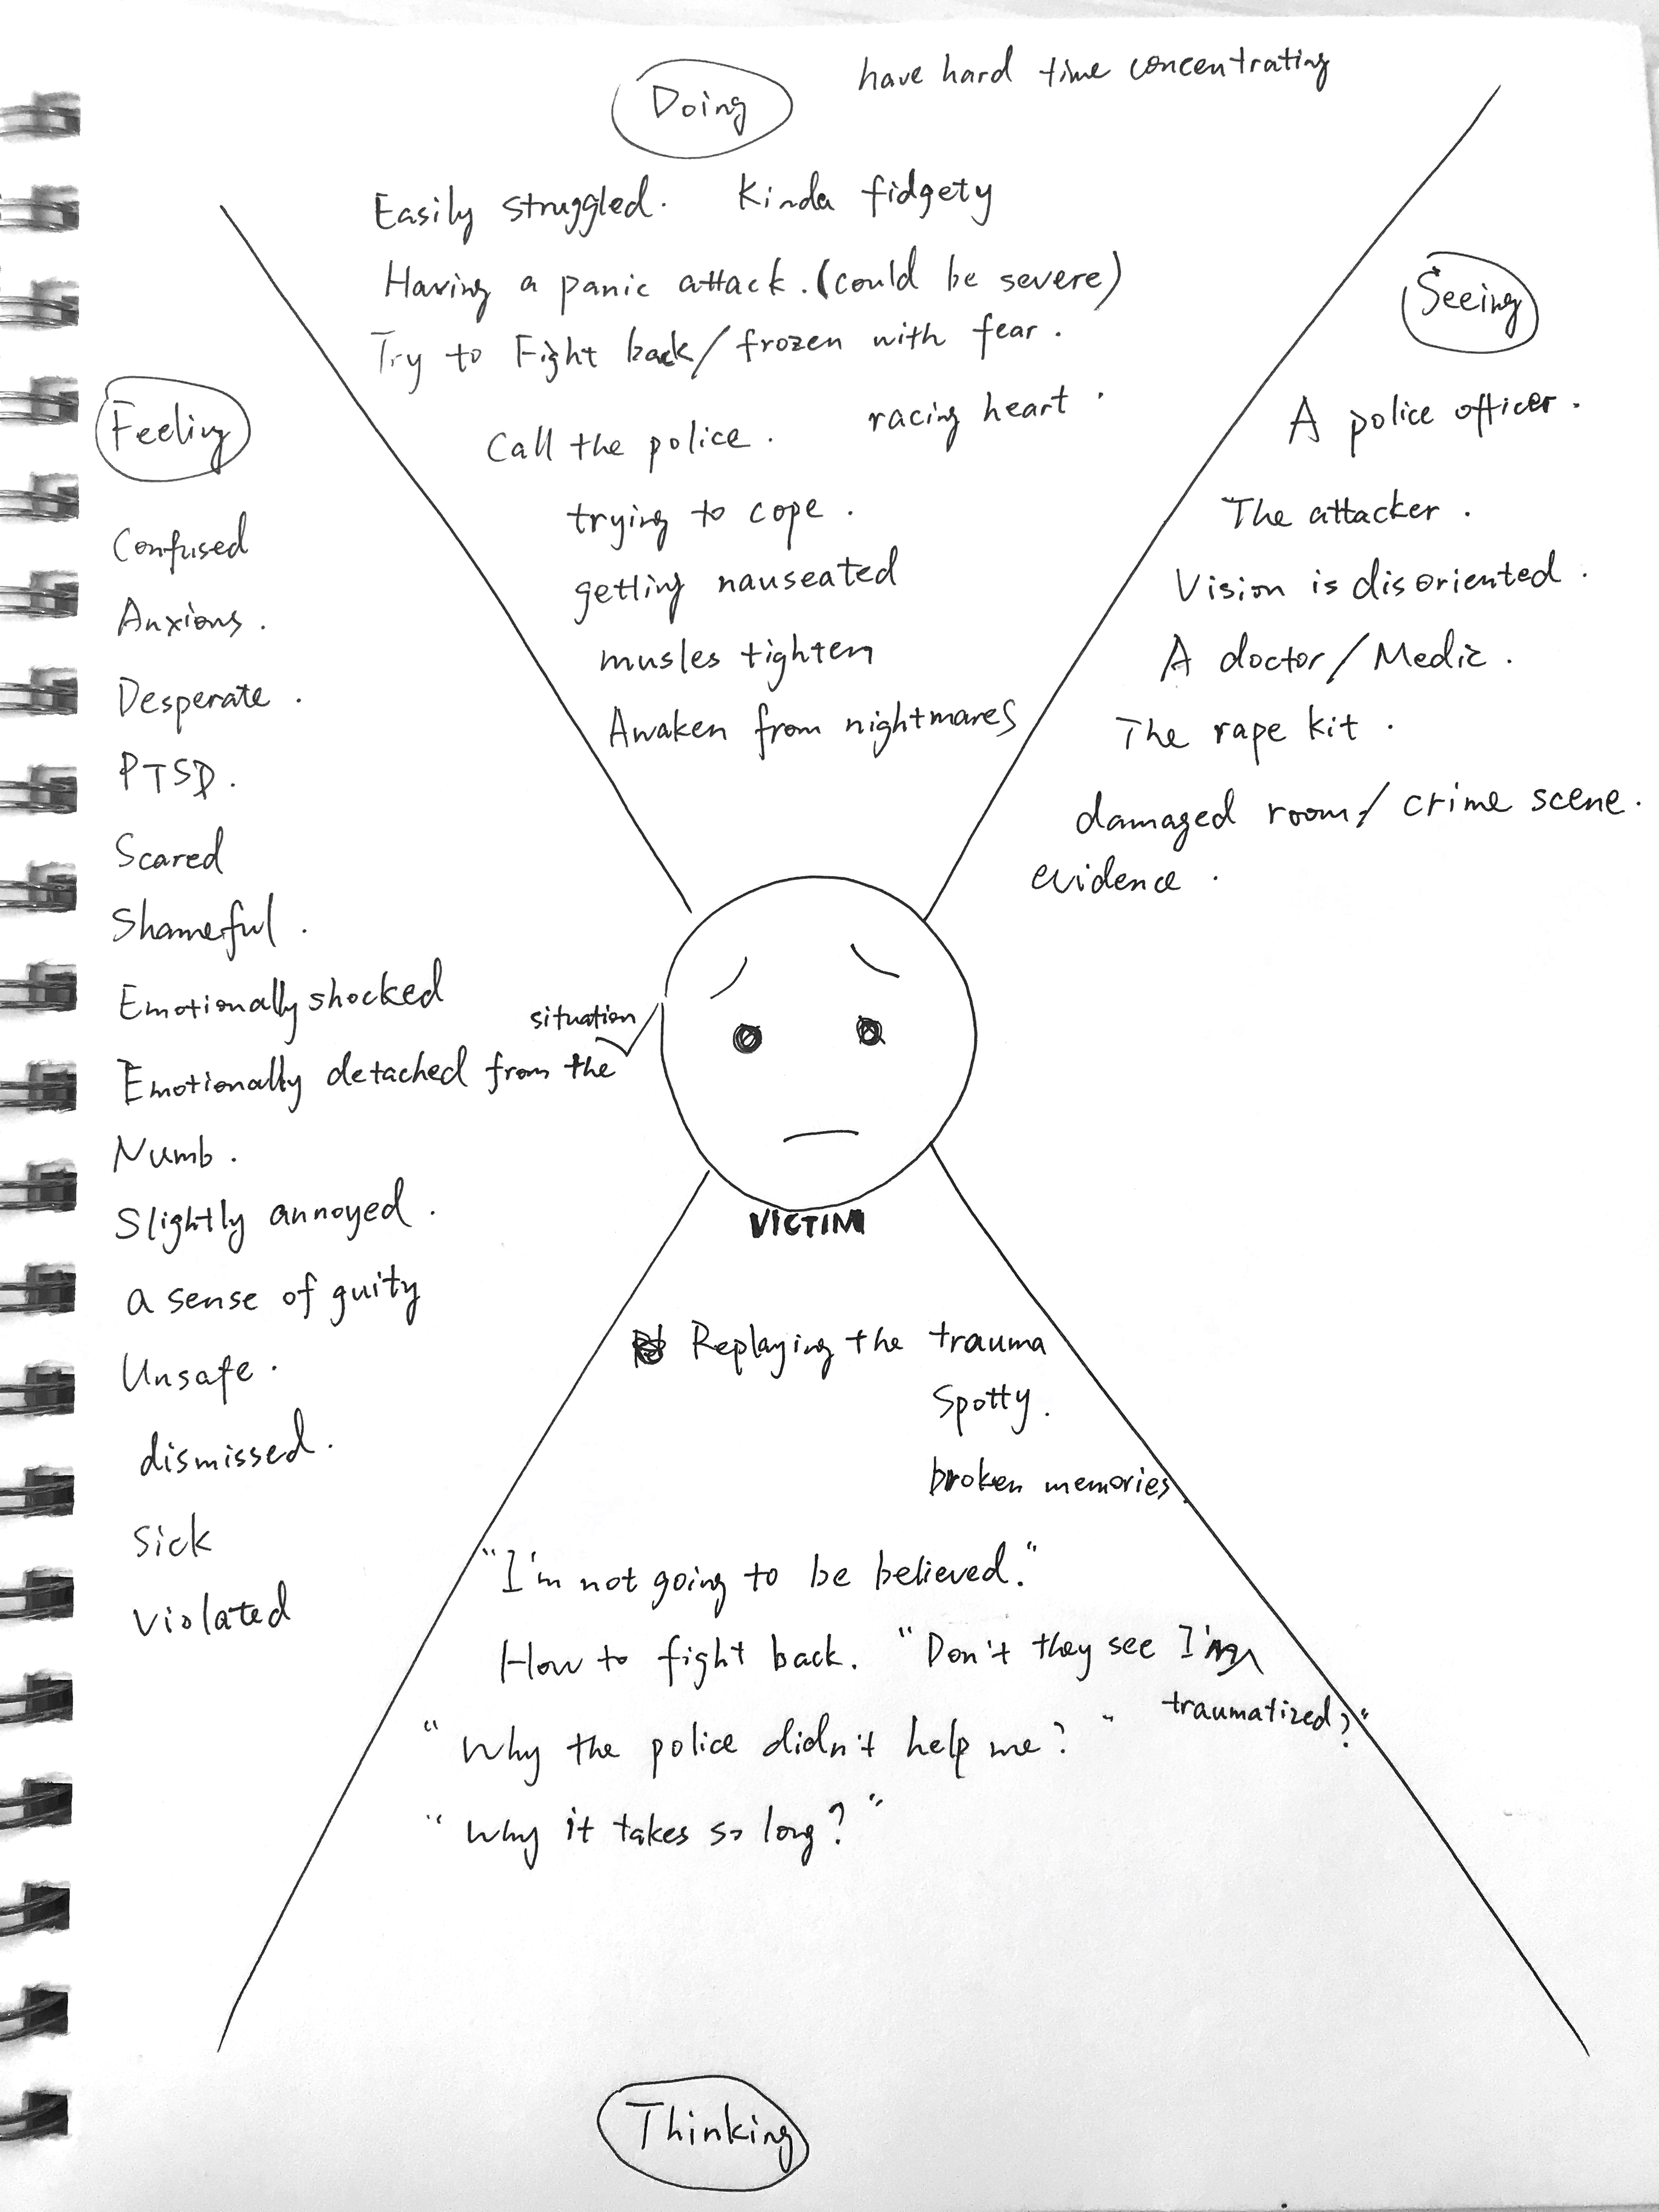 Doing
have hard time concentrating
Easily struggled. Kinda fidgety
Having a panic attack. (could be severe)
Try to Fight back/frozen with fear.
Call the police. racing heart.
trying to cope.
getting nauseated
musles tighten
Awaken from nightmares
Seeing
A police officer.
The attacker.
Vision is disoriented.
A doctor/Medic.
The rape kit.
damaged room/crime scene.
evidence.
Feeling
Confused
Anxious.
Desperate.
PTSD.
Scared
Shameful.
Emotionally shocked
Emotionally detached from the situation
Numb.
Slightly annoyed.
a sense of guity
Unsafe.
dismissed.
Sick
violated
VICTIM
Replaying the trauma
Spotty.
broken memories
"I'm not going to be believed."
How to fight back. "Don't they see I'm
traumatized?"
"Why the police didn't help me?"
"Why it takes so long?"
Thinking